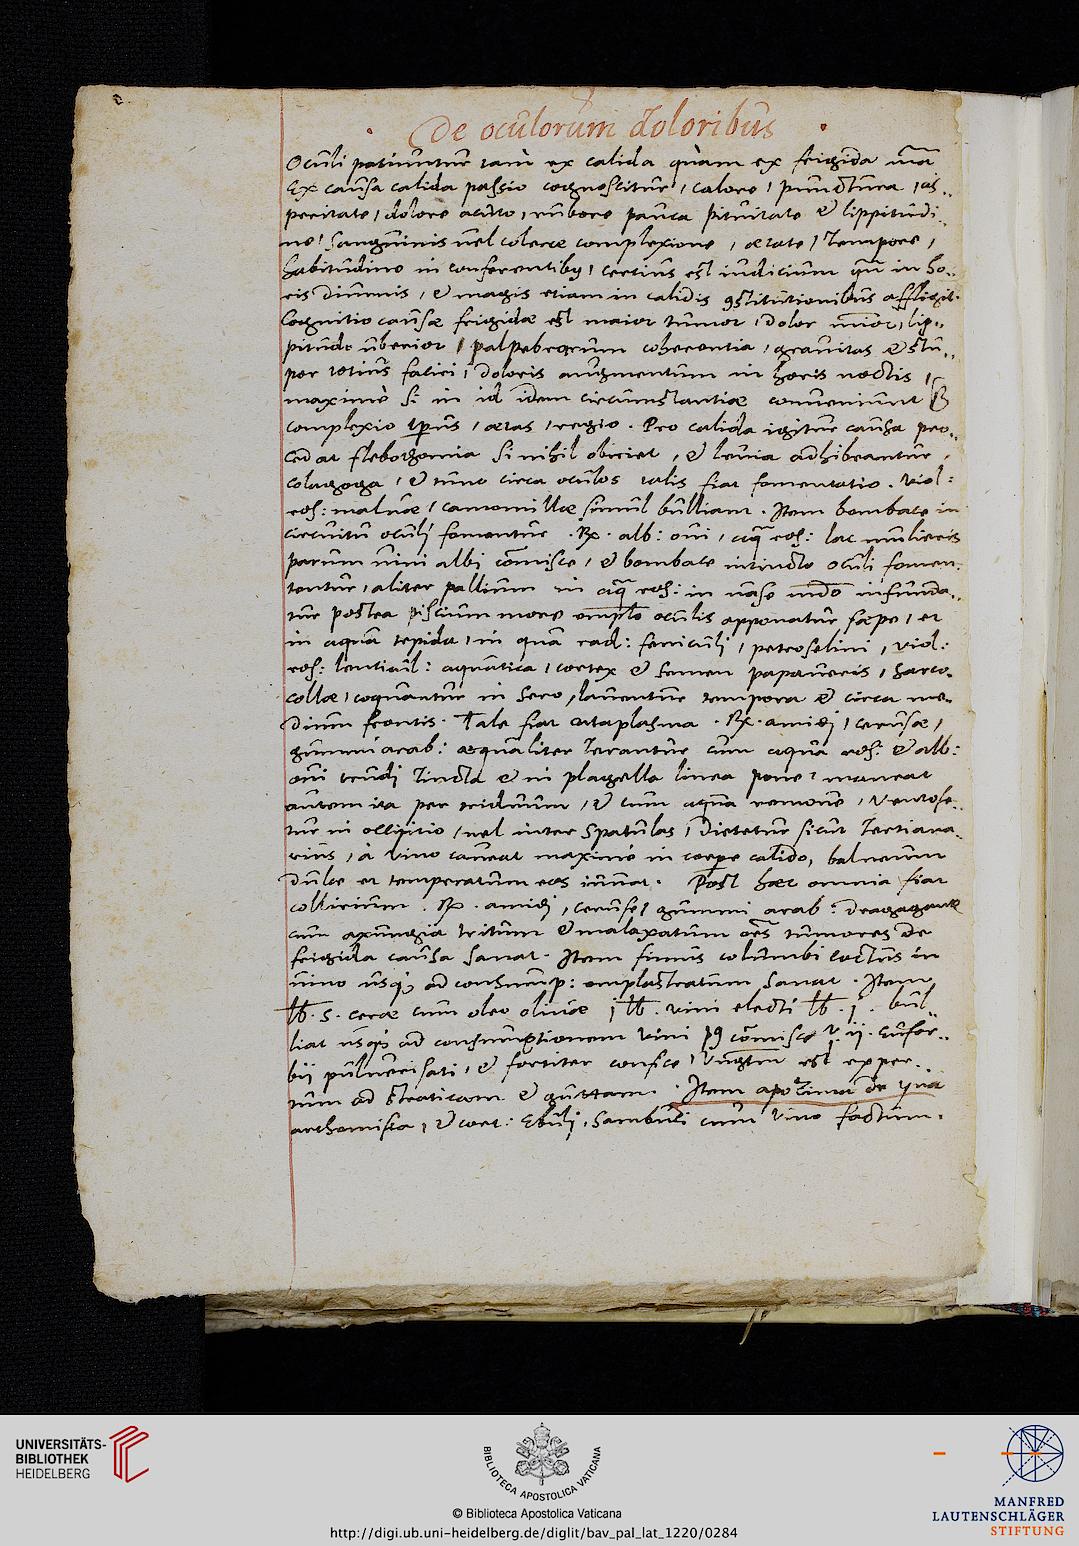 De oculorum doloribus
Oculi patiuntur tam ex calida quàm ex frigida
Ex causa calida passio cognoscitur, calore, punctura, as..
peritate, dolore acuto, rubore pauca pituitate & lippitudi..
ne, sanguinis uel colerae complexione, aetate, tempore,
habitudine in conferentibus, certius est iudicium in ho..
ris diurnis, & magis etiam in calidis 9stitutionibus affligit.
Cognitio causae frigidae est maior tumor, dolor minor, lip..
pitudo uberior, palpebrarum coherentia, grauitas & stu..
por totius faciei, doloris augmentum in horis noctis,
maximè si in id idem circumstantiae conueniunt
complexio tpus, aetas, regio. Pro calida igitur causa pro..
cedat flebothomia si nihil obiciet, & leuia adhibeantur,
colagoga, & tunc circa oculos talis fiat fomentatio. viol:
ros: maluae, camomillae simul bulliant. Item bombace in
circuitu oculi fomentur. Rx. alb: oui, aq ros: lac mulieris
parum uini albi comisce, & bombace intincto oculi fomen.
tentur, aliter pallium in aq ros: in uase infunda..
tur postea piscium more oculis apponatur saepe, et
in aqua tepida, in qua rad: feniculi, petroselini, viol:
ros: lenticul: aquatica, cortex & semen papaueris, sarco.
collae, coquantur in sero, lauentur tempora & circa me..
dium frontis. Tale fiat cataplasma. Rx. amidi, cerusae,
gummi arab: aequaliter terantur cum aqua ros: & alb:
oui crudi tincta & in plagella linea pone, maneat
autem ita per triduum, & cum aqua remoue, Ventose..
tur in occipitio, uel inter spatulas, Dietetur sicut tertiana..
rius, à vino caueat maximè in corpe calido, balneum
dulce et temperatum eos iuuat. Post haec omnia fiat
collirium. Rx. amidi, cerusae, gummi arab: dragagant
cum axungia tritum & malaxatum oes tumores de
frigida causa sanat. Item fimus columbi coctus in
uino usq ad consump: emplastratum sanat. Item
lb. s. cerae cum oleo oliuae j lb. vini electi lb. j. bul..
liat usq ad consumptionem vini comisce ij. eufor..
bij puluerisati, & fortiter confice, est exper..
tum ad & guttam. Item apozima de
arthemisia, & cort: Ebuli, Sambuci cum vino factum.
UNIVERSITÄTS-
BIBLIOTHEK
HEIDELBERG
BIBLIOTECA APOSTOLICA VATICANA
© Biblioteca Apostolica Vaticana
http://digi.ub.uni-heidelberg.de/diglit/bav_pal_lat_1220/0284
MANFRED
LAUTENSCHLÄGER
STIFTUNG